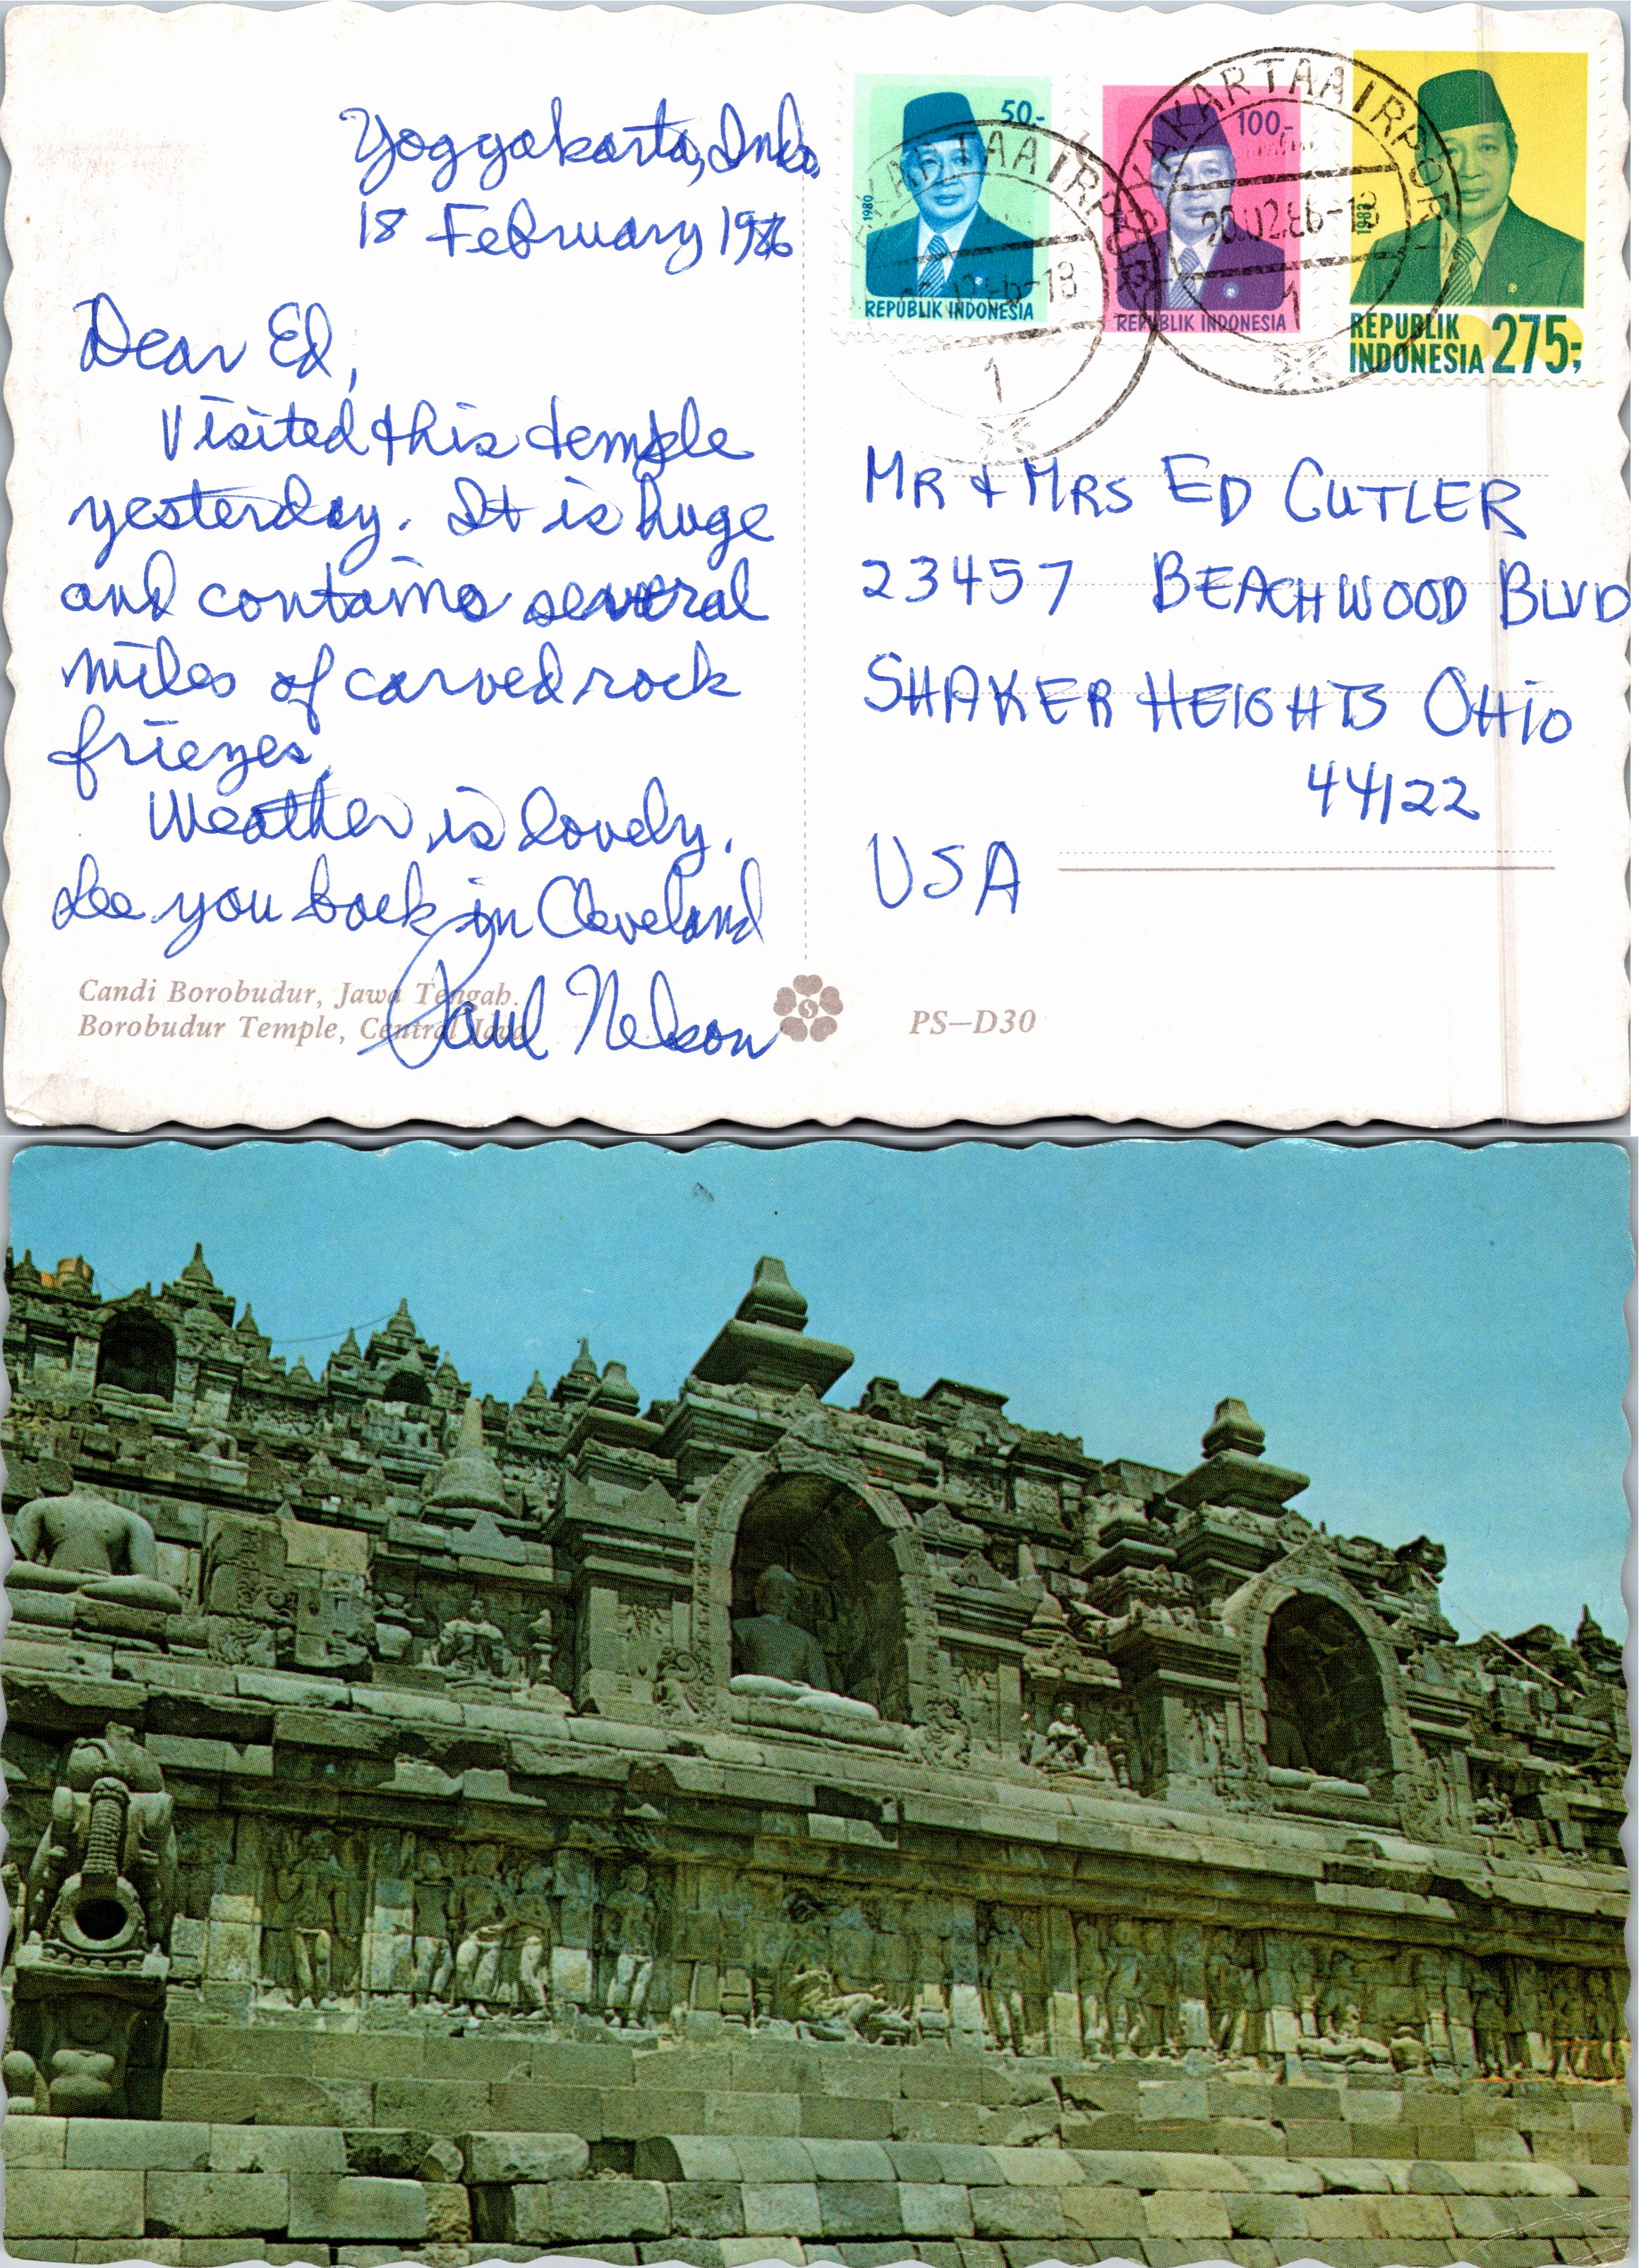 Yogyakarta, Indo.
18 February 1986
Dear Ed,
Visited this temple
yesterday. It is huge
and contains several
miles of carved rock
friezes.
Weather is lovely.
See you back in Cleveland
Paul Nelson
Candi Borobudur, Jawa Tengah.
Borobudur Temple, Central Java
PS-D30
50,-
1980
REPUBLIK INDONESIA
100,-
REPUBLIK INDONESIA
1983
REPUBLIK
INDONESIA 275,-
KARTA AIRPOR
1
YAKARTA AIRPOR
20.02.86-18
1
MR & MRS ED CUTLER
23457 BEACHWOOD BLVD
SHAKER HEIGHTS OHIO
44122
USA